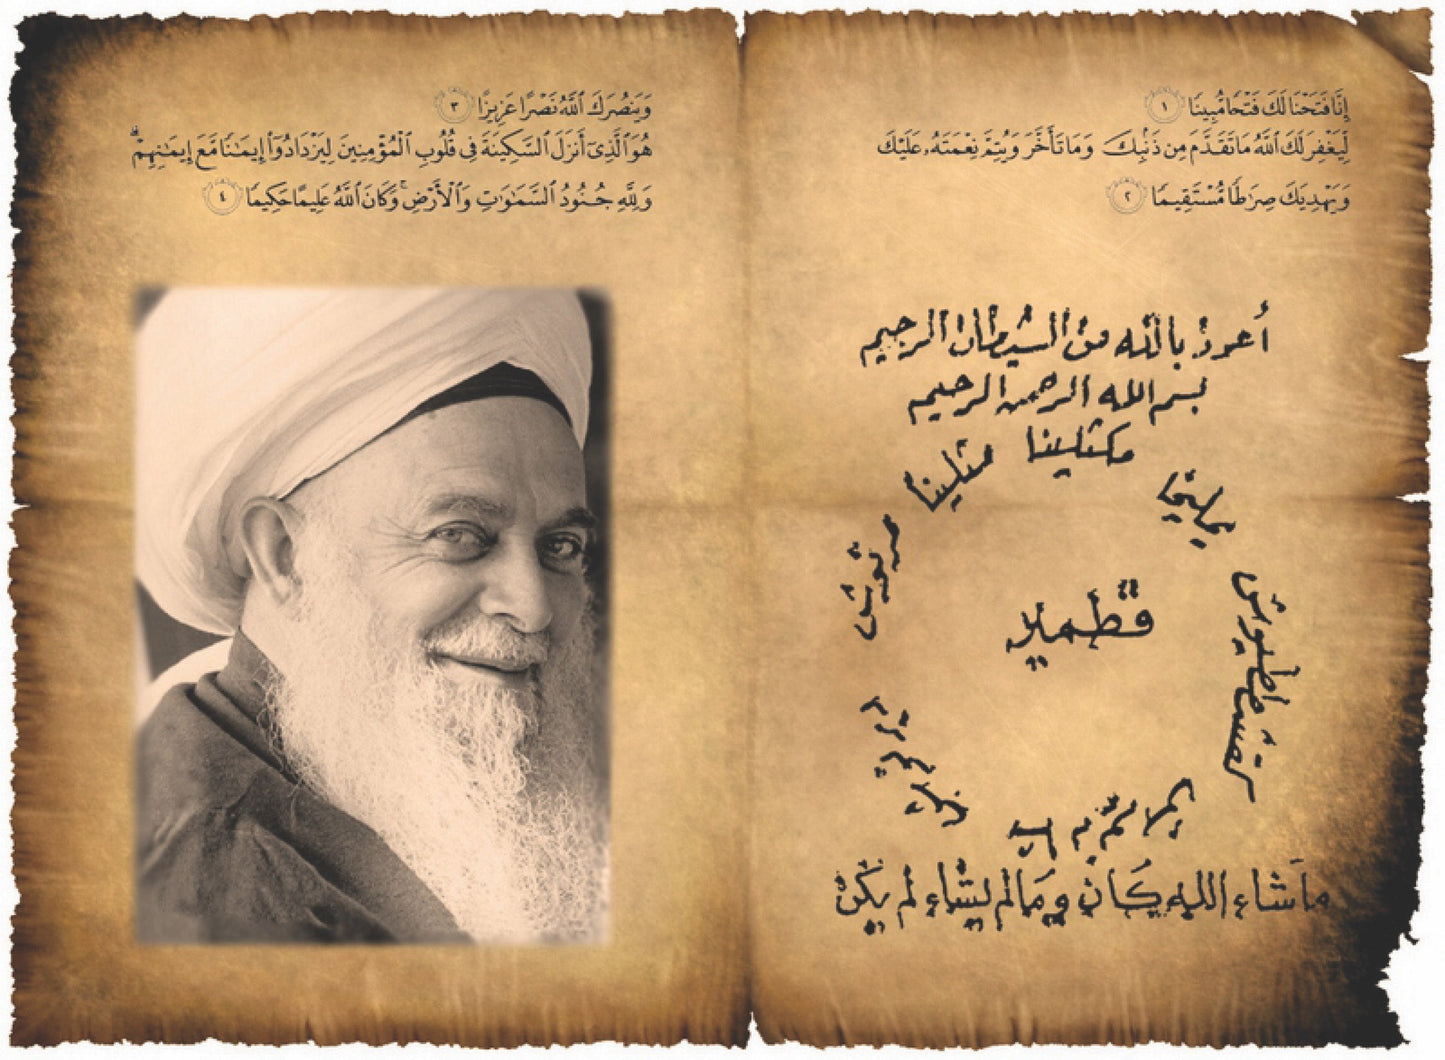 إِنَّا فَتَحْنَا لَكَ فَتْحًا مُّبِينًا ١
لِّيَغْفِرَ لَكَ ٱللَّهُ مَا تَقَدَّمَ مِن ذَنۢبِكَ وَمَا تَأَخَّرَ وَيُتِمَّ نِعْمَتَهُۥ عَلَيْكَ
وَيَهْدِيَكَ صِرَٰطًا مُّسْتَقِيمًا ٢
وَيَنصُرَكَ ٱللَّهُ نَصْرًا عَزِيزًا ٣
هُوَ ٱلَّذِىٓ أَنزَلَ ٱلسَّكِينَةَ فِى قُلُوبِ ٱلْمُؤْمِنِينَ لِيَزْدَادُوٓا۟ إِيمَـٰنًا مَّعَ إِيمَـٰنِهِمْ ۗ
وَلِلَّهِ جُنُودُ ٱلسَّمَـٰوَٰتِ وَٱلْأَرْضِ ۚ وَكَانَ ٱللَّهُ عَلِيمًا حَكِيمًا ٤
أعوذ بالله من الشيطان الرجيم
بسم الله الرحمن الرحيم
مكثلينا
مثلينا
مرنوش
يمليخا
قطمير
ما شاء الله كان وما لم يشاء لم يكن